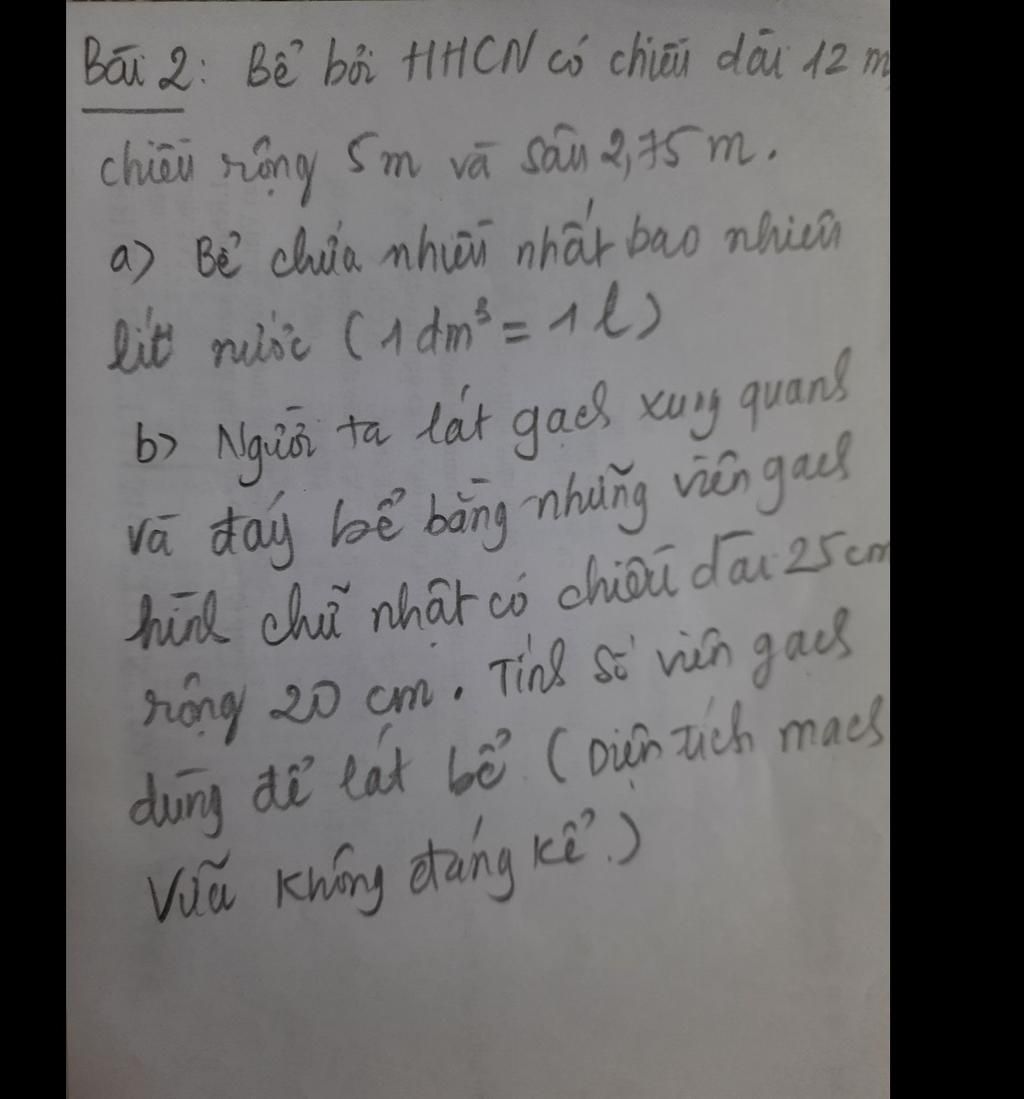 Bài 2: Bể bơi HHCN có chiều dài 12 m
chiều rộng 5m và sâu 2,75 m.
a) Bể chứa nhiều nhất bao nhiêu
lít nước (1 dm³ = 1 l)
b) Người ta lát gạch xung quanh
và đáy bể bằng những viên gạch
hình chữ nhật có chiều dài 25 cm
rộng 20 cm. Tính số viên gạch
dùng để lát bể (Diện tích mạch
vữa không đáng kể.)